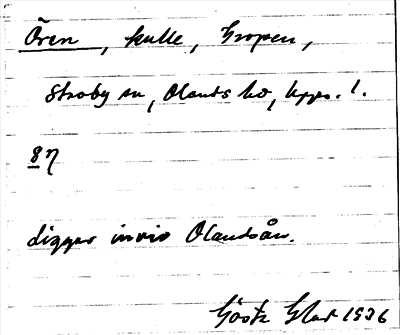 Ören, kulle, Gropen,
Skoby sn, Olands hd, Upps. l.
87
ligger invid Olandsån.
Gösta 1936